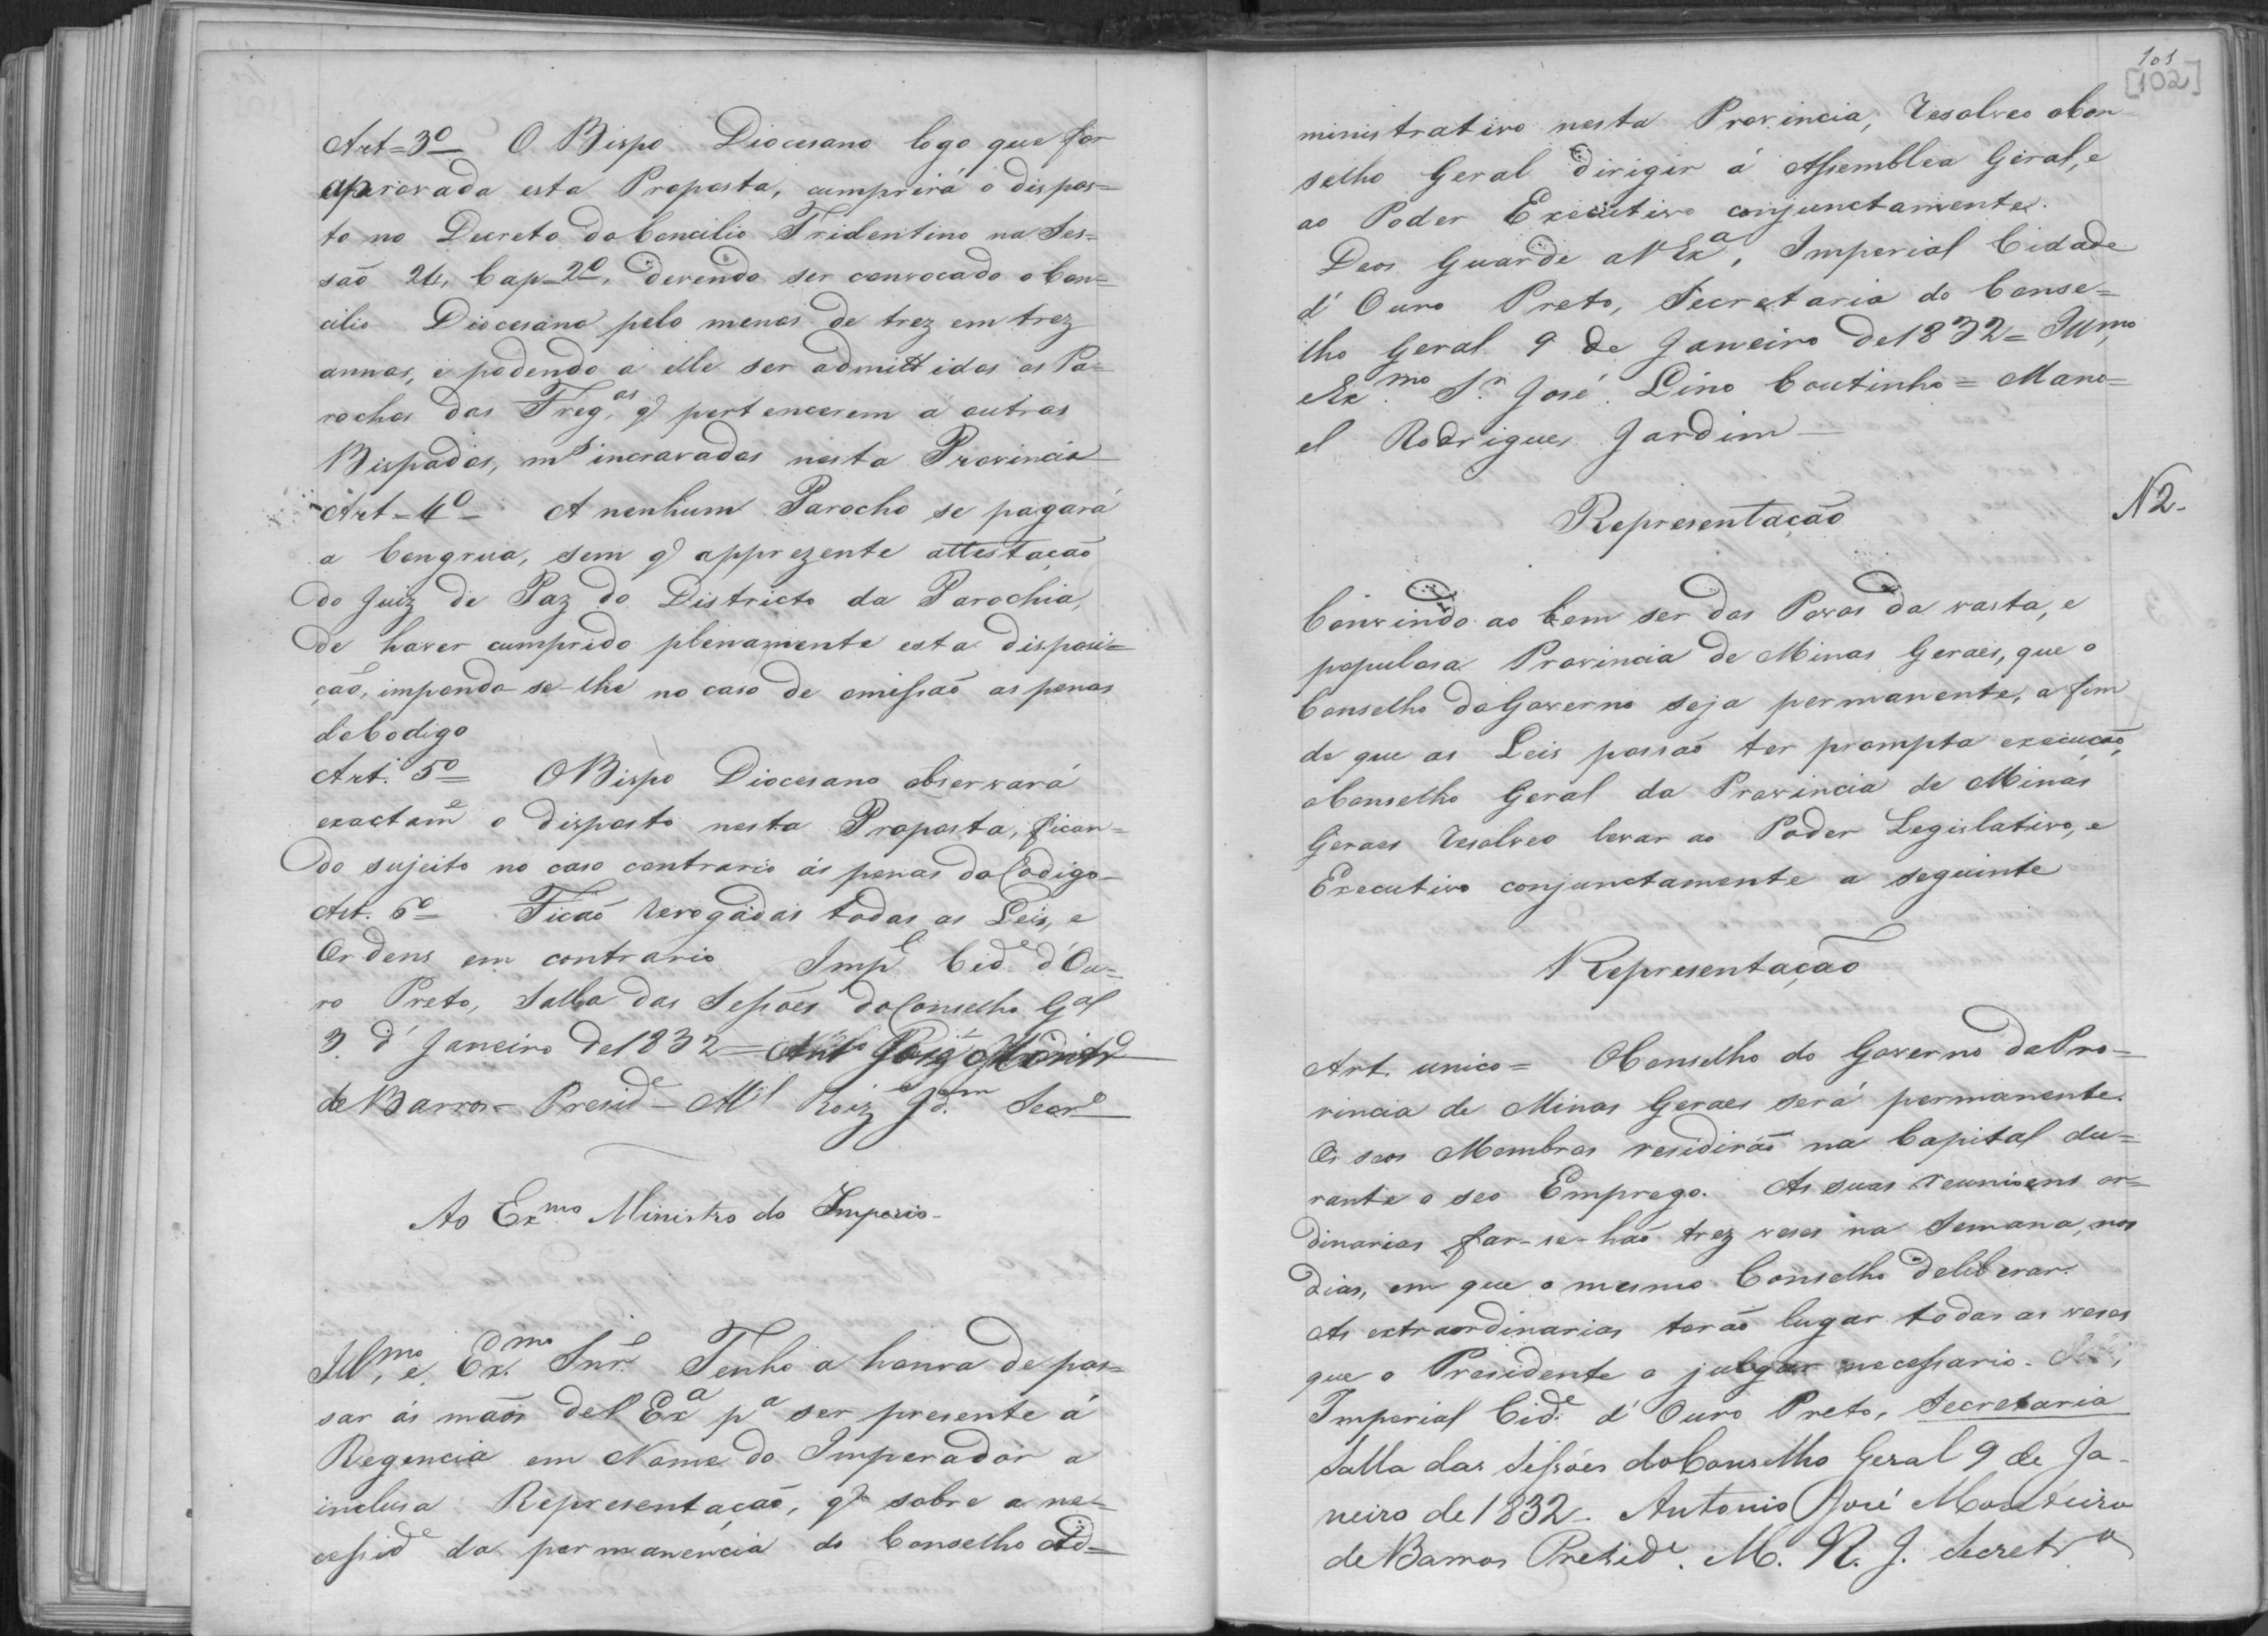 Art=3º O Bispo Diocesano logo que for
aprovada esta Proposta, cumprirá o dispos=
to no Decreto do Concilio Tridentino na Ses=
são 24, Cap=2º, devendo ser convocado o Con=
cilio Diocesano pelo menos de trez em trez
annos, e podendo a elle ser admittidos os Pa=
rochos das Fregas, q pertencerem a outros
Bispados, ms incravadas nesta Provincia
Art=4º A nenhum Parocho se pagará
a Congrua, sem q apprezente attestação
do Juiz de Paz do Districto da Parochia,
de haver cumprido plenamente esta disposi=
ção, impondo-se-lhe no caso de omissão as penas
do Codigo
Art. 5º O Bispo Diocesano observará
exactame o disposto nesta Proposta, fican=
do sujeito no caso contrario ás penas do Codigo-
Art. 6º Ficão revogadas todas as Leis, e
Ordens em contrario Impl Cide d'Ou=
ro Preto, Salla das Sessões do Conselho Gal
3 d'Janeiro de 1832= Anto José Montro
de Barros - Preside - Ml Roiz Jdm Secro
Ao Exmo Ministro do Imperio-
Illmo, e Exmo Snr. Tenho a honra de pas=
sar ás mãos de V Exa pa ser presente á
Regencia em Nome do Imperador a
inclusa Representação, q sobre a ne=
cesside da permanencia do Conselho Ad=
101
[102]
ministrativo nesta Provincia, resolveo o Con
selho Geral dirigir á Assemblea Geral, e
ao Poder Executivo conjunctamente.
Deos Guarde a V Exa, Imperial Cidade
d'Ouro Preto, Secretaria do Conse=
lho Geral 9 de Janeiro de 1832= Illmo,
e Exmo Sr. José Lino Coutinho= Mano=
el Rodrigues Jardim
Representação
N 2.
Convindo ao bem ser dos Povos da vasta, e
populosa Provincia de Minas Geraes, que o
Conselho do Governo seja permanente, a fim
de que as Leis possão ter prompta execução,
o Conselho Geral da Provincia de Minas
Geraes resolveo levar ao Poder Legislativo, e
Executivo conjunctamente a seguinte
Representação
Art. unico= O Conselho do Governo da Pro=
vincia de Minas Geraes será permanente.
Os seos Membros residirão na Capital du=
rante o seo Emprego. As suas reunioens or=
dinarias far-se-hão trez veses na Semana, nos
dias, em que o mesmo Conselho deliberar.
As extraordinarias terão lugar todas as veses
que o Presidente o julgar necessario.
Imperial Cide d'Ouro Preto, Secretaria
Salla das Sessões do Conselho Geral 9 de Ja-
neiro de 1832- Antonio José Monteiro
de Barros Preside. M. R. J. Secretro